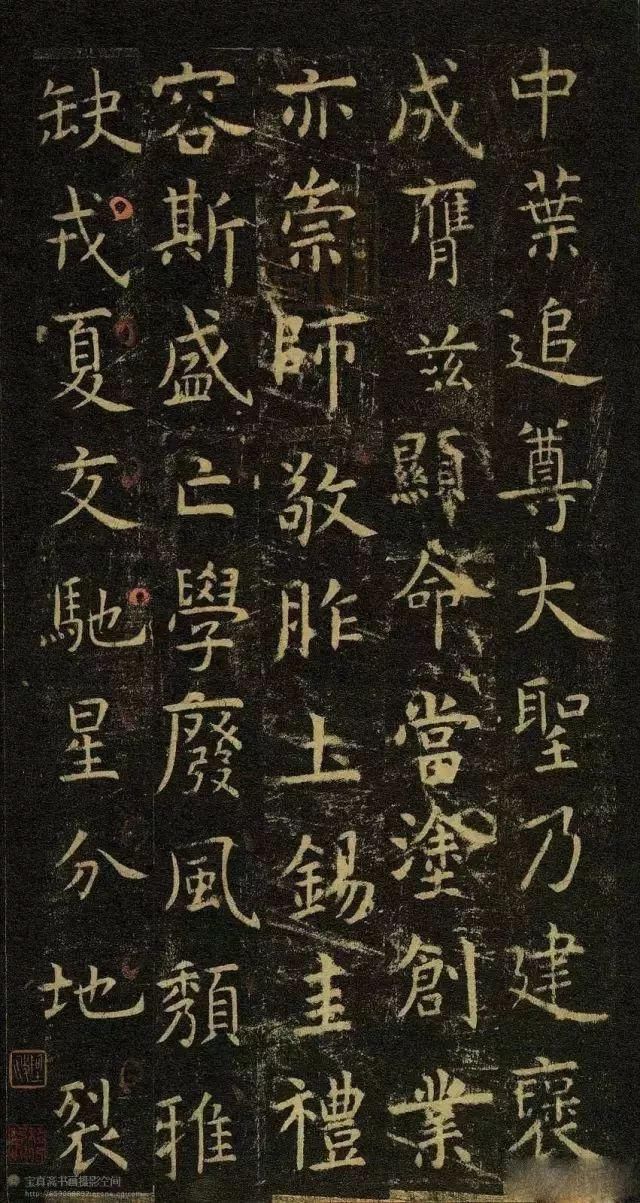 中葉追尊大聖乃建褒
成膺兹顯命當塗創業
亦崇師敬胙土錫圭禮
容斯盛亡學廢風頽雅
缺戎夏交馳星分地裂
宝真斋书画摄影空间